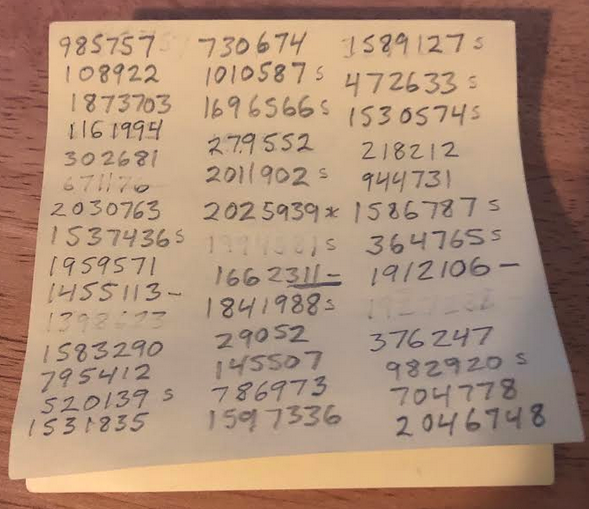 985757
108922
1873703
1161994
302681
671176
2030763
1537436 s
1959571
1455113 -
1583290
795412
520139 s
1531835
730674
1010587 s
1696566 s
279552
2011902 s
2025939 *
1662311 -
1841988 s
29052
145507
786973
1597336
1589127 s
472633 s
1530574 s
218212
944731
1586787 s
364765 s
1912106 -
376247
982920 s
704778
2046748